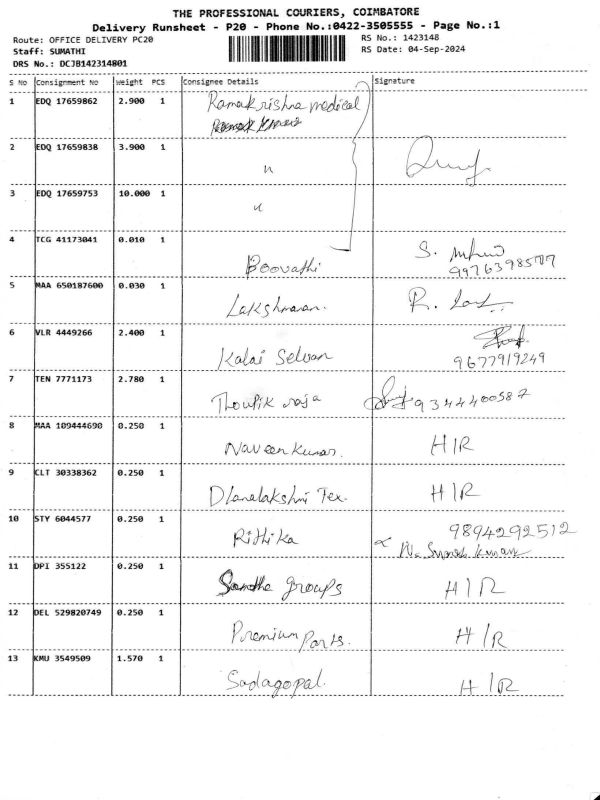 THE PROFESSIONAL COURIERS, COIMBATORE
Delivery Runsheet - P20 - Phone No.:0422-3505555 - Page No.:1
Route: OFFICE DELIVERY PC20 RS No.: 1423148
Staff: SUMATHI RS Date: 04-Sep-2024
DRS No.: DCJB142314801
S No Consignment No Weight PCS Consignee Details Signature
1 EDQ 17659862 2.900 1 Ramakrishna medical
2 EDQ 17659838 3.900 1 "
3 EDQ 17659753 10.000 1 "
4 TCG 41173041 0.010 1 Boovathi S.
5 MAA 650187600 0.030 1 Lakshmanan. R.
6 VLR 4449266 2.400 1 Kalai Selvan 9677919249
7 TEN 7771173 2.780 1 Thoufik raja 9344400587
8 MAA 109444690 0.250 1 Naveen Kumar. H/R
9 CLT 30338362 0.250 1 Dhanalakshmi Tex. H/R
10 STY 6044577 0.250 1 Rithika 9894292512
N. Suresh Kumar
11 DPI 355122 0.250 1 groups H/R
12 DEL 529820749 0.250 1 Premium Parts. H/R
13 KMU 3549509 1.570 1 Sadagopal. H/R